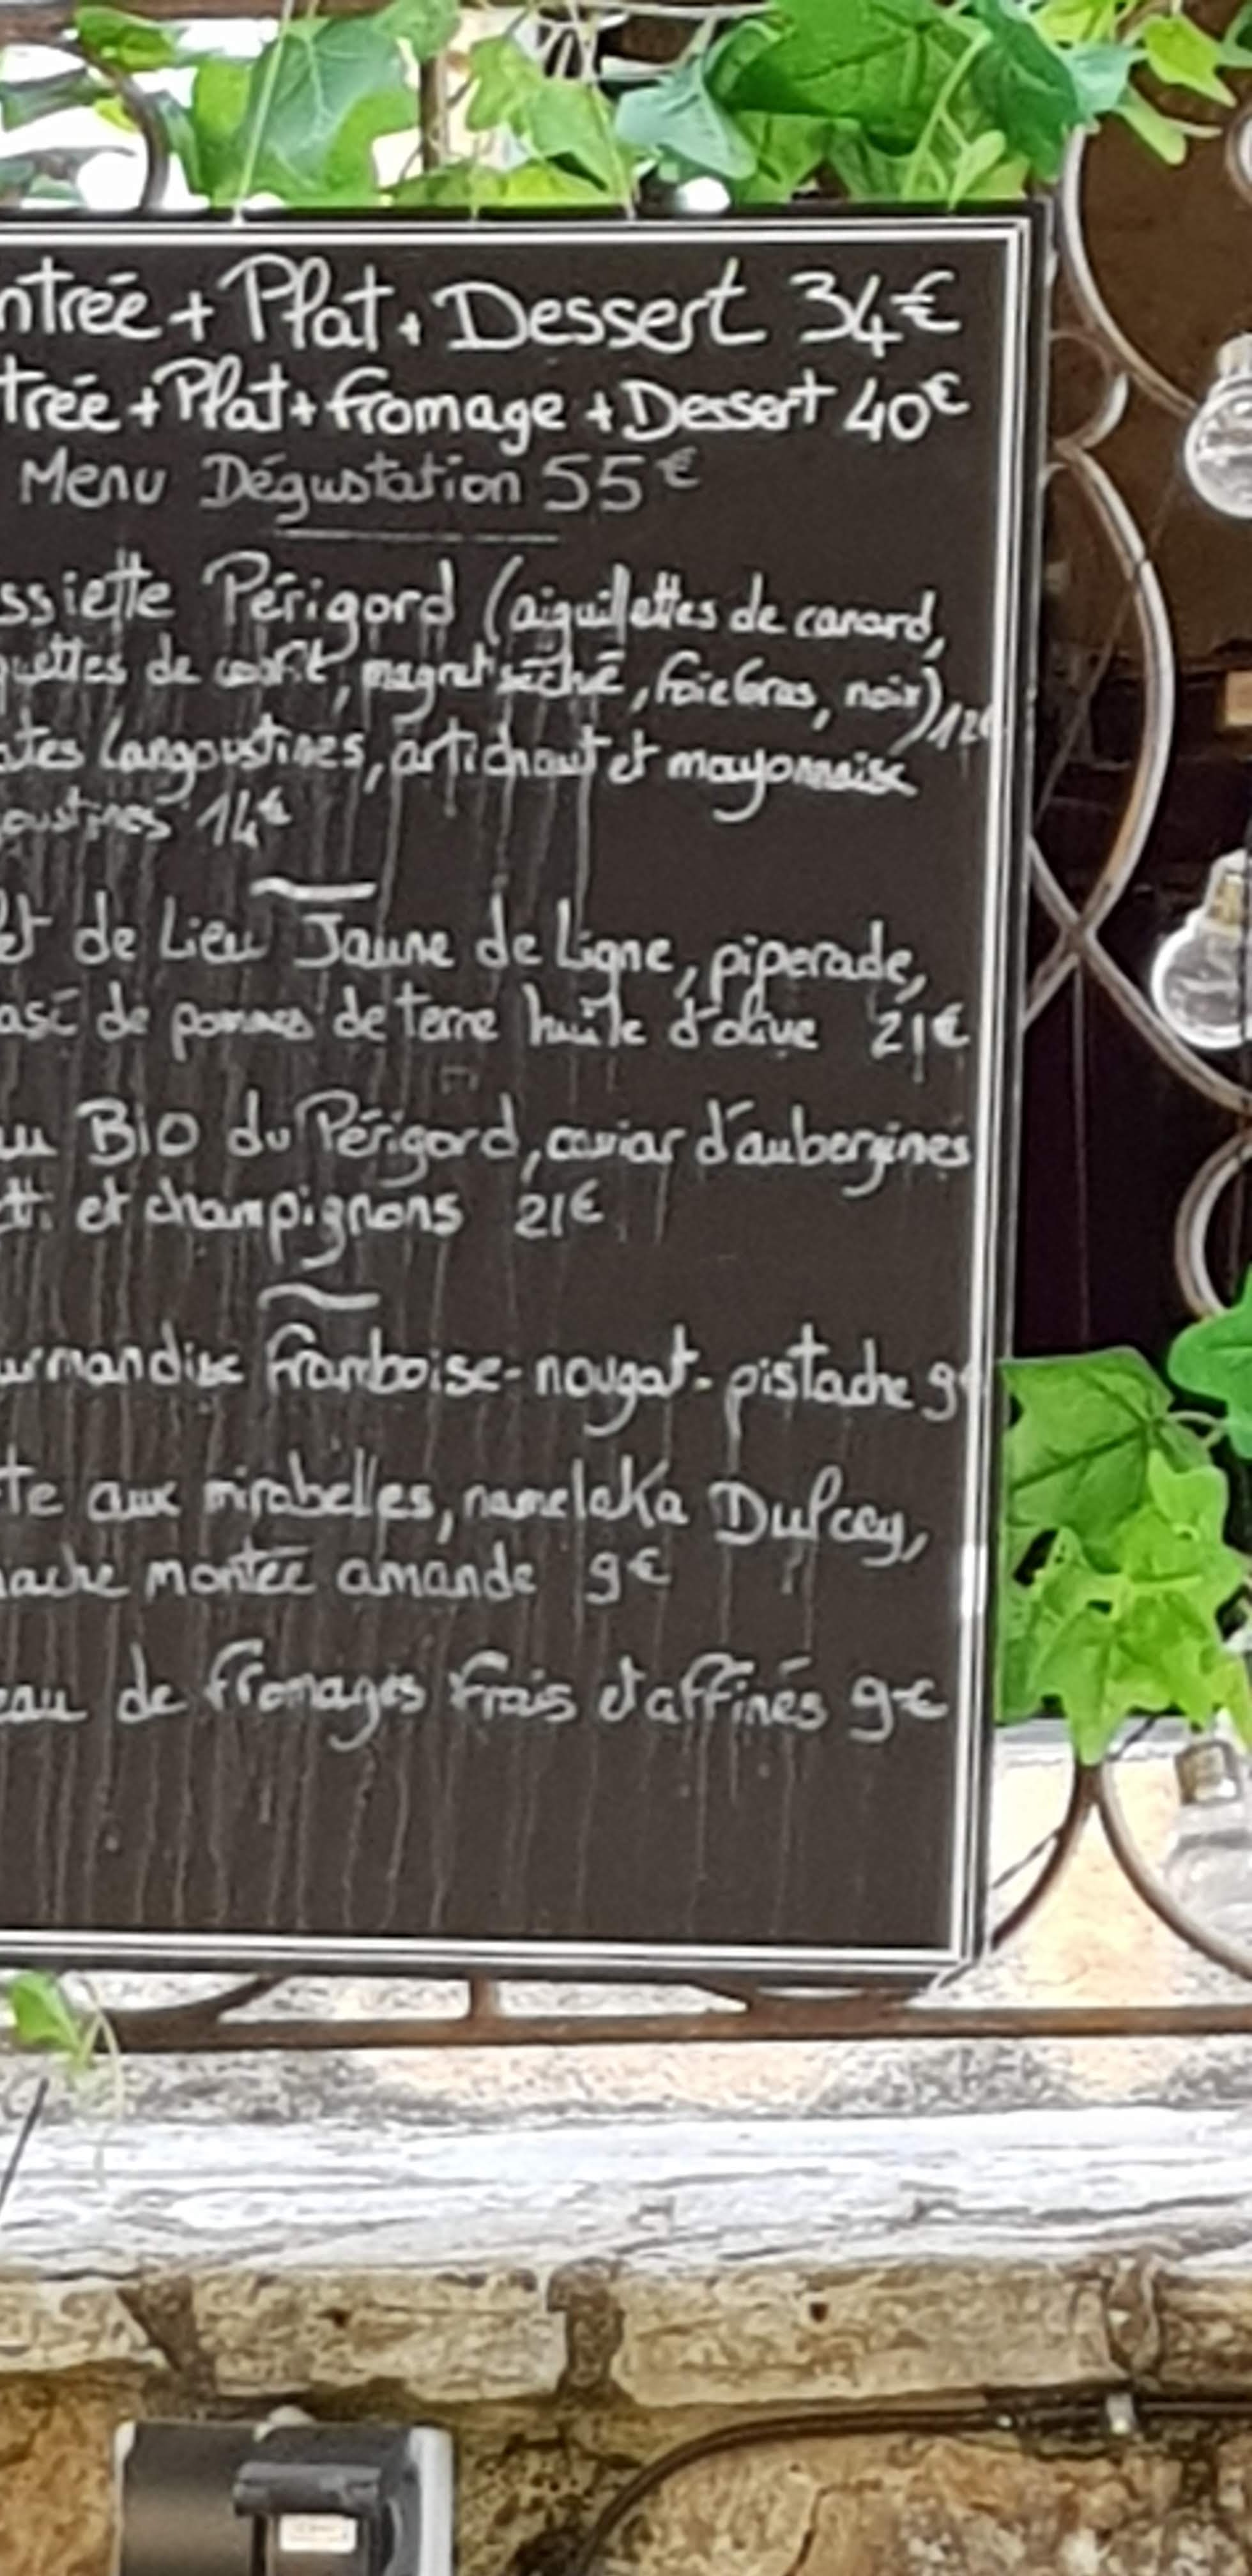 ntrée + Plat + Dessert 34€
trée + Plat + fromage + Dessert 40€
Menu Dégustation 55€
ssiette Périgord (aiguillettes de canard,
quettes de confit, magret séché, foie Gras, noix) 12€
ates langoustines, artichaut et mayonnaise
oustines 14€
et de Lieu Jaune de Ligne, piperade,
asé de pommes de terre huile d'olive 21€
au BIO du Périgord, caviar d'aubergines
et champignons 21€
urmandise framboise-nougat-pistache 9€
te aux mirabelles, namelaka Dulcey,
nache montée amande 9€
eau de fromages frais et affinés 9€